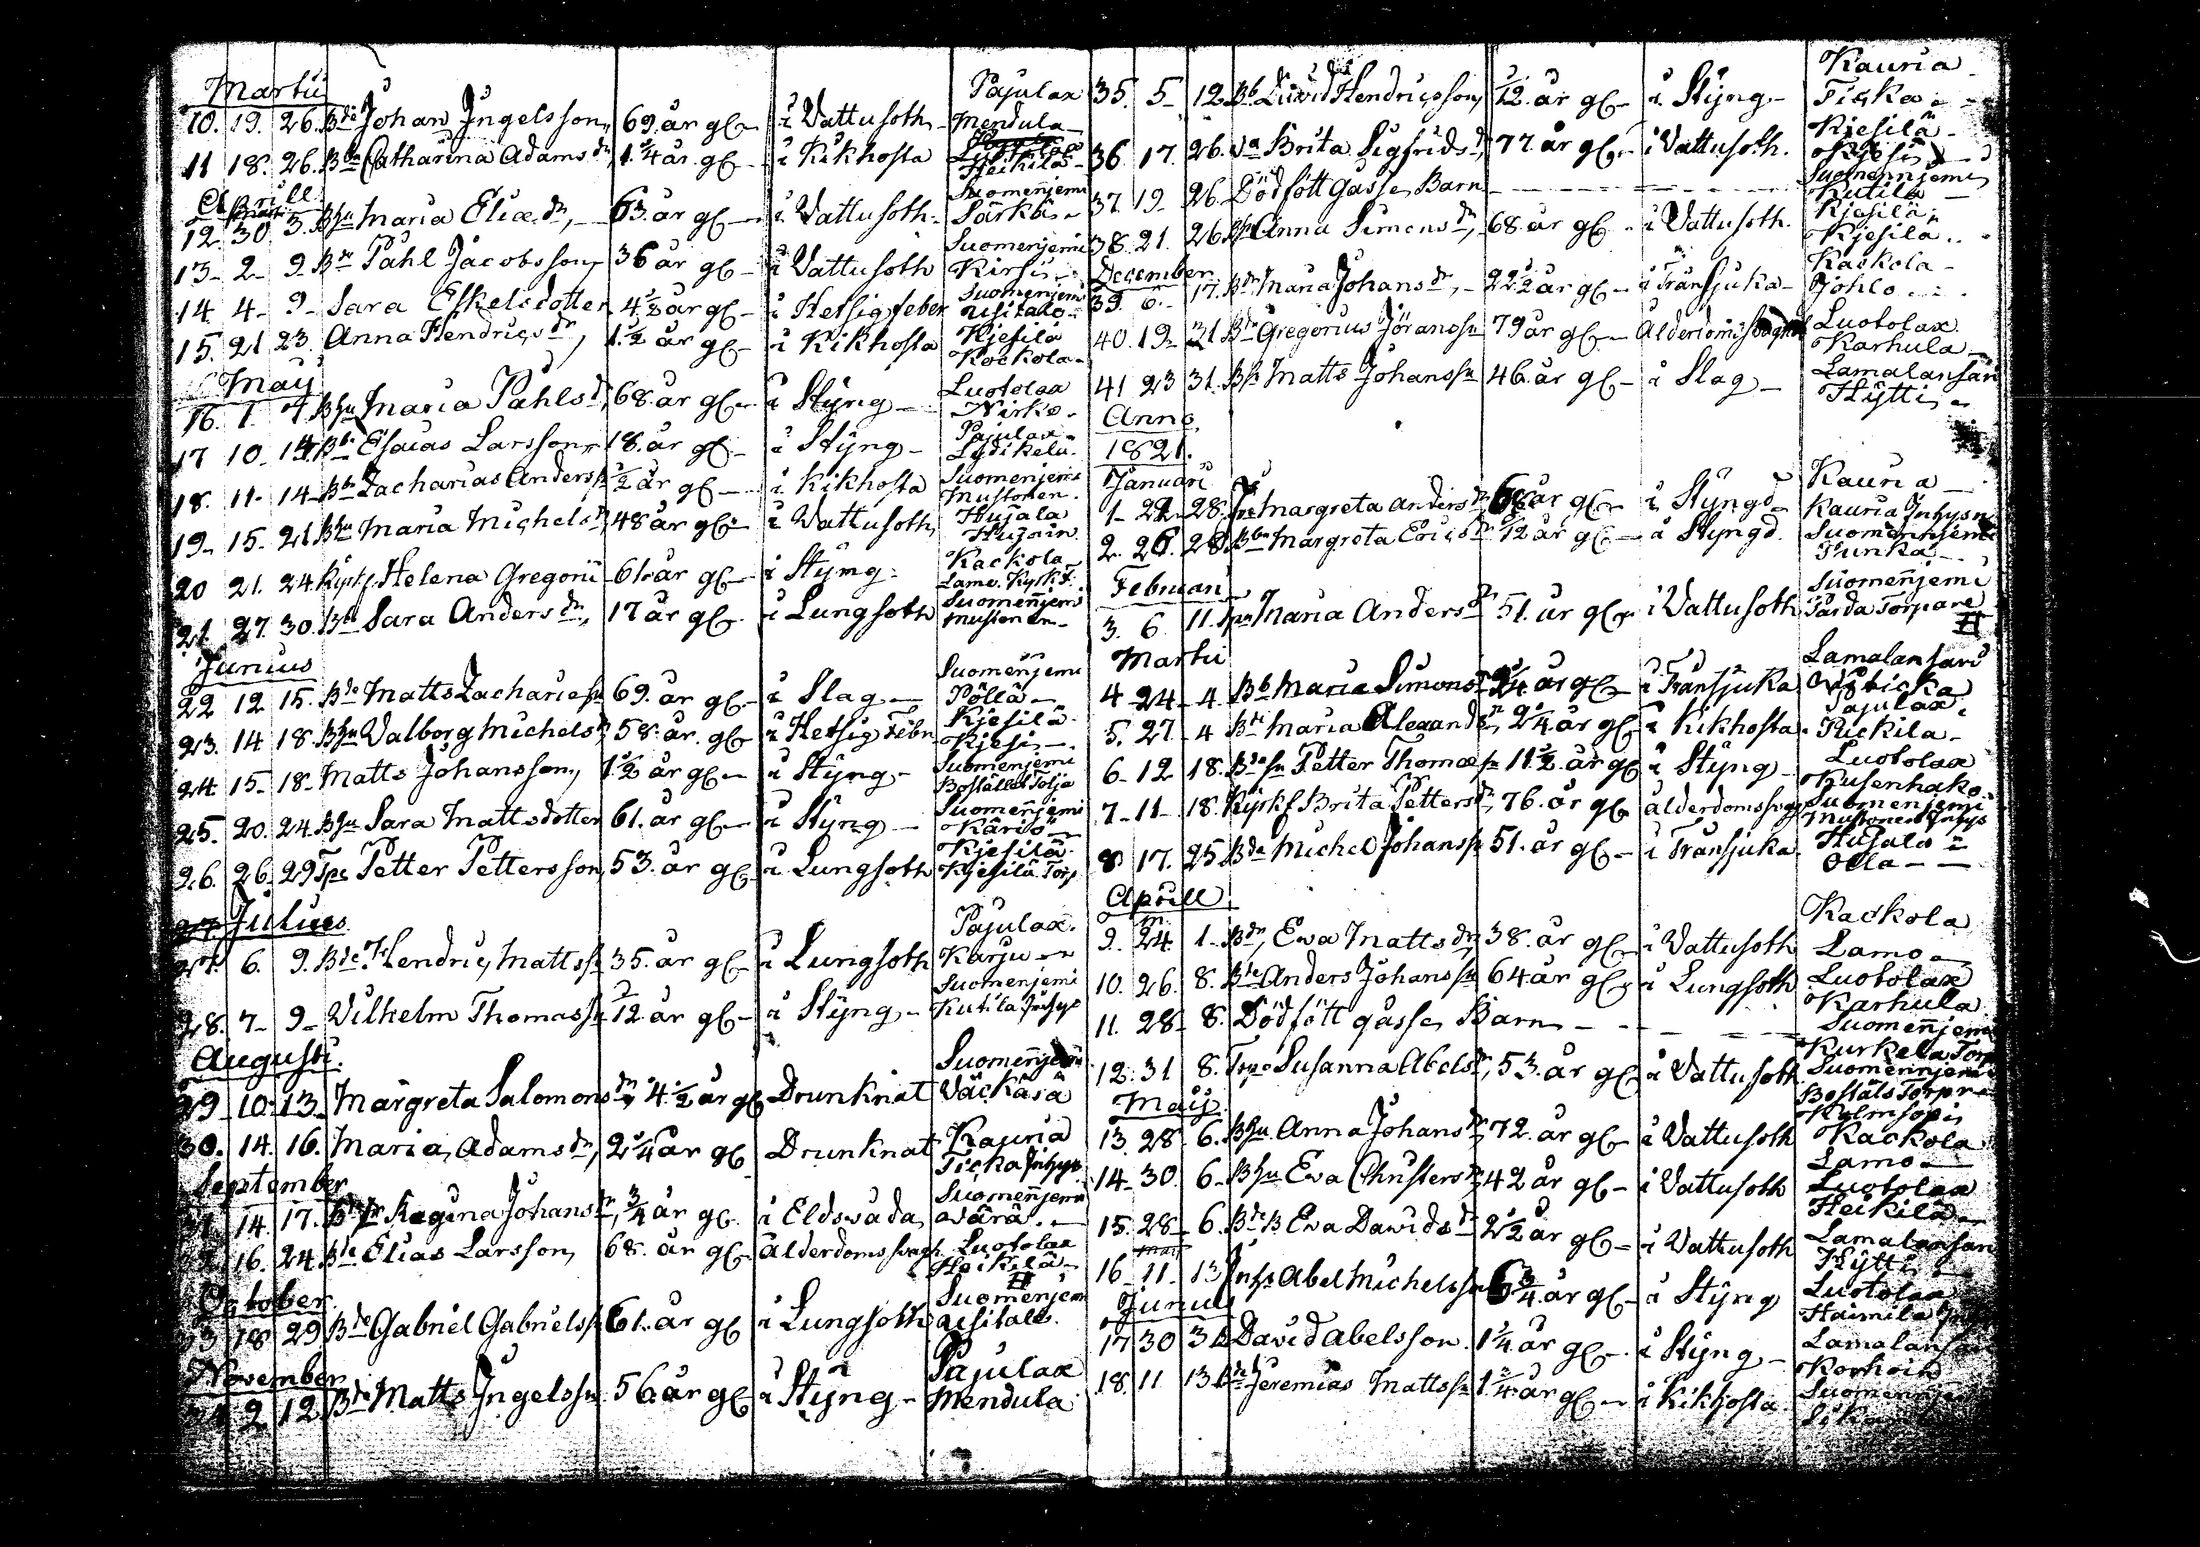 Martii
10. 19. 26. Bde Johan Ingelsson, 69. år gl– i Vattusoth– Pajulax Mendula–
11 18. 26. Bdr Catharina Adams dr, 1.¼ år. gl– i Kikhosta Heikilä–
Aprill
12. 30. 3. Bhu Maria Eliæ dr, – 63. år gl– i Vattusoth– Suomenjemi Särkis–
13– 2– 9. Bn Påhl Jacobsson, 36 år gl– i Vattusoth Suomenjemi Kirsis–
14. 4– 9– Sara Eskelsdotter 4.½ år gl– i Hetsig feber Suomenjemi Uisitalo–
15. 21 23. Anna Hendrics dr, 1.½ år gl– i Kikhosta Kjesilä Kockola–
May
16. 1. 7 Bhu Maria Påhls d, 68. år gl– i Styng– Luotolax Nirko–
17 10– 14. Bde Esaias Larsson, 18. år gl– i Styng– Pajulax– Lydikelä
18. 11– 14– Bde Zacharias Anderss ½ år gl– i Kikhosta Suomenjemi Mustonen.
19– 15– 21. Bhu Maria Michels d, 48 år gl– i Vattusoth, Hujala Hujoin
20 21. 24. Kyrkf. Helena Gregorii 61. år gl– i Styng– Kackola Lamo. Kyrkf.
21. 27. 30. Bd Sara Anders dr, 17 år gl– i Lungsoth Suomenjemi Mustonen–
Junius
22 12 15. Bde Matts Zachariæ sn 69. år gl– i Slag– Suomenjemi Pöllä–
23. 14 18. Bhu Valborg Michels d, 58. år. gl– i Hetsig Feber Kjesilä– Kjesis–
24 15– 18– Matts Johansson, 1½ år gl– i Styng– Suomenjemi Boställes Tolja
25. 20. 24. Bhu Sara Mattsdotter 61. år gl– i Styng– Suomenjemi Kärio–
26. 26. 29. Tpe Petter Pettersson 53. år gl– i Lungsoth Kjesilä– Kjesilä Torp
Julius
27. 6. 9. Bde Hendric Mattss 35. år gl– i Lungsoth Pajulax. Karju–
28. 7– 9– Vilhelm Thomass ½ år gl– i Styng– Suomenjemi Kutila Inhys
Augusti.
29– 10– 13– Margreta Salomons dr, 4.½ år gl Drunknat Suomenjemi Väckäsä
30. 14. 16. Maria Adams dr, 2¼ år gl Drunknat Kauria Ticka Inhys
September
31 14. 17. Regina Johans dr, ¾ år gl– i Eldsvåda, Suomenjemi Värä.–
32. 16. 24. Bde Elias Larsson, 68. år gl– ålderdoms svagh. Luotolax Heikilä–
October.
33 18. 29. Bde Gabriel Gabrielss 61. år gl i Lungsoth Suomenjemi Uisitalo.
November
34 2. 12. Bde Matts Ingelsson 56. år gl i Styng– Pajulax Mendula
35. 5– 12. Bb David Hendricsson, ½. år gl– i Styng– Kauria Ticka–
36. 17. 26. Brita Sigfrids d, 77. år gl– i Vattusoth. Kjesilä– Kjesis
37. 19– 26. Dödfött Gosse Barn – – – Suomenjemi Kutila–
38. 21. 26. Bhu Anna Simons dr, 68. år gl– i Vattusoth. Kjesilä– Kjesilä
December
39. 6. 17. Bdr Maria Johans dr, – 22½ år gl– i Transjuka– Kackola– Johlo
40. 19– 31. Bde Gregorius Jöransson 79 år gl– Ålderdoms svaghet Luotolax Karhula
41 23 31. Matts Johansson 46. år gl– i Slag– Lamalansari Hytti–
Anno
1821.
Januari
1– 22– 28. Margreta Anders dr, 68 år gl– i Styngd– Kauria Kauria Inhysn
2. 26. 28. Bbn Margreta Erics dr ½ år gl– i Styngd. Suomenjemi Punka
Februari
3. 6. 11. Maria Anders dr 51. år gl– i Vattusoth Suomenjemi Torpare
Martii
4– 24– 4. Bb Maria Simons dr 2¼ år gl– i Transjuka Lamalansari
5. 27– 4 Maria Alexand dr, 2¼ år gl– i Kikhosta– Pajulax. Rickila–
6– 12 18. Petter Thomæ sn 11½. år gl i Styng– Luotolax Kusenhako.
7– 11– 18. Kyrkf Brita Petters dr, 76. år gl ålderdomssvagh Suomenjemi Mustonen Inhys
8 17. 25. Bde Michel Johansson 51. år gl– i Transjuka. Hujala Olla– –
Aprill
9. 24. 1– Eva Matts dr, 38. år gl– i Vattusoth Kackola Lamo–
10. 26. 8. Bde Anders Johansson 64 år gl– i Lungsoth Luotolax Karhula
11. 28– 8. Dödfött gosse Barn – – – Suomenjemi Kurkela Torp
12. 31 8. Susanna Abels dr, 53. år gl– i Vattusoth Suomenjemi Boställs Torpr
Maij
13 28. 6. Bhu Anna Johans dr, 72. år gl– i Vattusoth Kackola Lamo–
14– 30. 6– Bhu Eva Christers dr, 42 år gl– i Vattusoth Luotolax Heikilä–
15. 28– 6. Eva Davids dr 2½ år gl– i Vattusoth Lamalansari Hytti–
16– 11– 13 Inhs Abel Michelsson 6¾ år gl– i Styng Luotolax Haimila
Junius
17 30 3 David Abelsson. 1¼ år gl– i Styng– Lamalansari
18. 11 13 Jeremias Mattsson 1¾ år gl– i Kikhosta. Suomenjemi